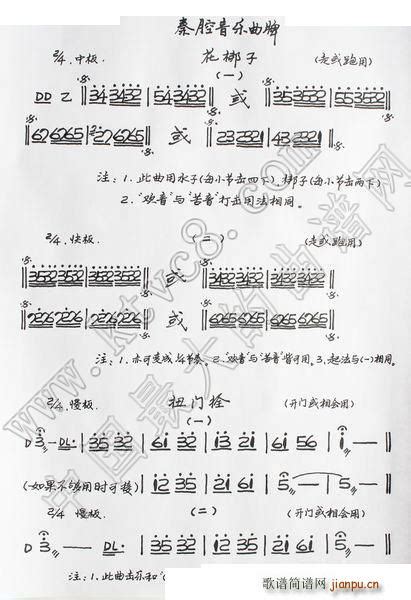 秦腔音乐曲牌
2/4 中板. 花梆子 (走或跑用)
(一)
DD 乙 ‖ 34 3432 | 54 3432 ‖ 或 ‖ 35 3532 | 55 3532 ‖
‖ 62 6265 | 22 6265 ‖ 或 ‖ 23 2321 | 43 2321 ‖
注：1. 此曲用水子(每小节击四下). 梆子(每小节击两下)
2. "欢音"与"苦音"打击用法相同。
2/4 快板. (二) (走或跑用)
‖ 3532 3532 | 3532 3532 ‖ 或 ‖ 3432 3432 | 3432 3432 ‖
‖ 2226 2226 | 2226 2226 ‖ 或 ‖ 6265 6265 | 6265 6265 ‖
注：1. 亦可变成 节奏. 2. "欢音"与"苦音"皆可用. 3. 起法与(一)相同.
2/4 慢板. 扭门栓 (开门或相会用)
(一)
D 3 — DL· | 35 32 | 61 32 | 13 21 | 61 56 | 1 — |
(如果不够用时可接) | 12 35 | 21 61 | 5 — | 5 — ‖
2/4 慢板 (二) (开门或相会用)
D 3 — DL· | 35 32 | 12 35 | 21 61 | 5 — | 5 — ‖
注：1. 此曲击乐和"
www.ktvc8.com
中国最大的曲谱网
歌谱简谱网
jianpu.cn